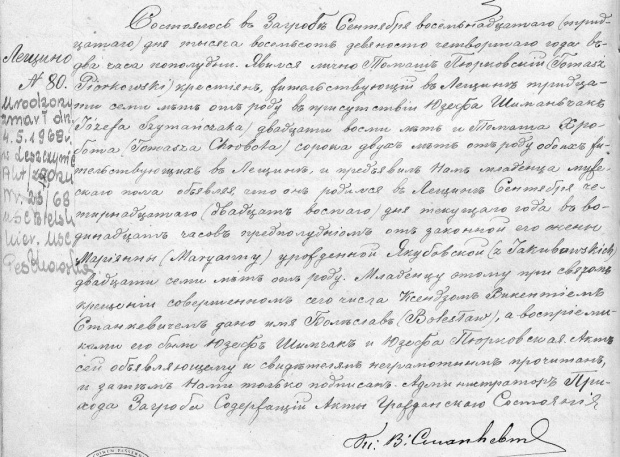 Состоялось в Загробѣ Сентября восемьнадцатаго (тридцатаго) дня тысяча восемьсотъ девяносто четвертаго года въ
два часа пополудни. Явился лично Томашъ Піорковскій (Tomasz
Piorkowski) крестіянинъ, жительствующій в Лещинѣ тридцати семи лѣтъ отъ роду въ присутствіи Юзефа Шиманьчак
(Józefa Szymańczaka) двадцати восми лѣтъ и Томаша Хробота (Tomasza Chrobota) сорока двухъ лѣтъ отъ роду обоихъ жительствующихъ в Лещинѣ, и предъявилъ Намъ младенца мужескаго пола объявляя, что онъ родился в Лещинѣ Сентября четырнадцатаго (двадцать шестаго) дня текущаго года въ одинадцать часовъ предполуднiомъ отъ законной его жены
Маріянны (Maryanny) урожденной Якубовской (z Jakubowskich)
двадцати семи лѣтъ отъ роду. Младенцу этому при святомъ
крещеніи совершенномъ сего числа Ксендзомъ Викентіемъ
Станкевичемъ дано имя Болѣславъ (Bolesław), а воспріемниками его были Юзефъ Шимчакъ и Юзефа Піорковская. Актъ
сей объявляющему и свидѣтелямъ неграмотнымъ прочитанъ,
и затѣмъ Нами только подписанъ. Администраторъ Прихода Загроба Содержащій Акты Гражданскаго Состоянія
Кс: В: Станкевичъ
Лещино
№ 80.
Urodzony
zmarł dn.
4.5.1968r.
w Leszczynie
Akt zgonu
Nr. 23/68